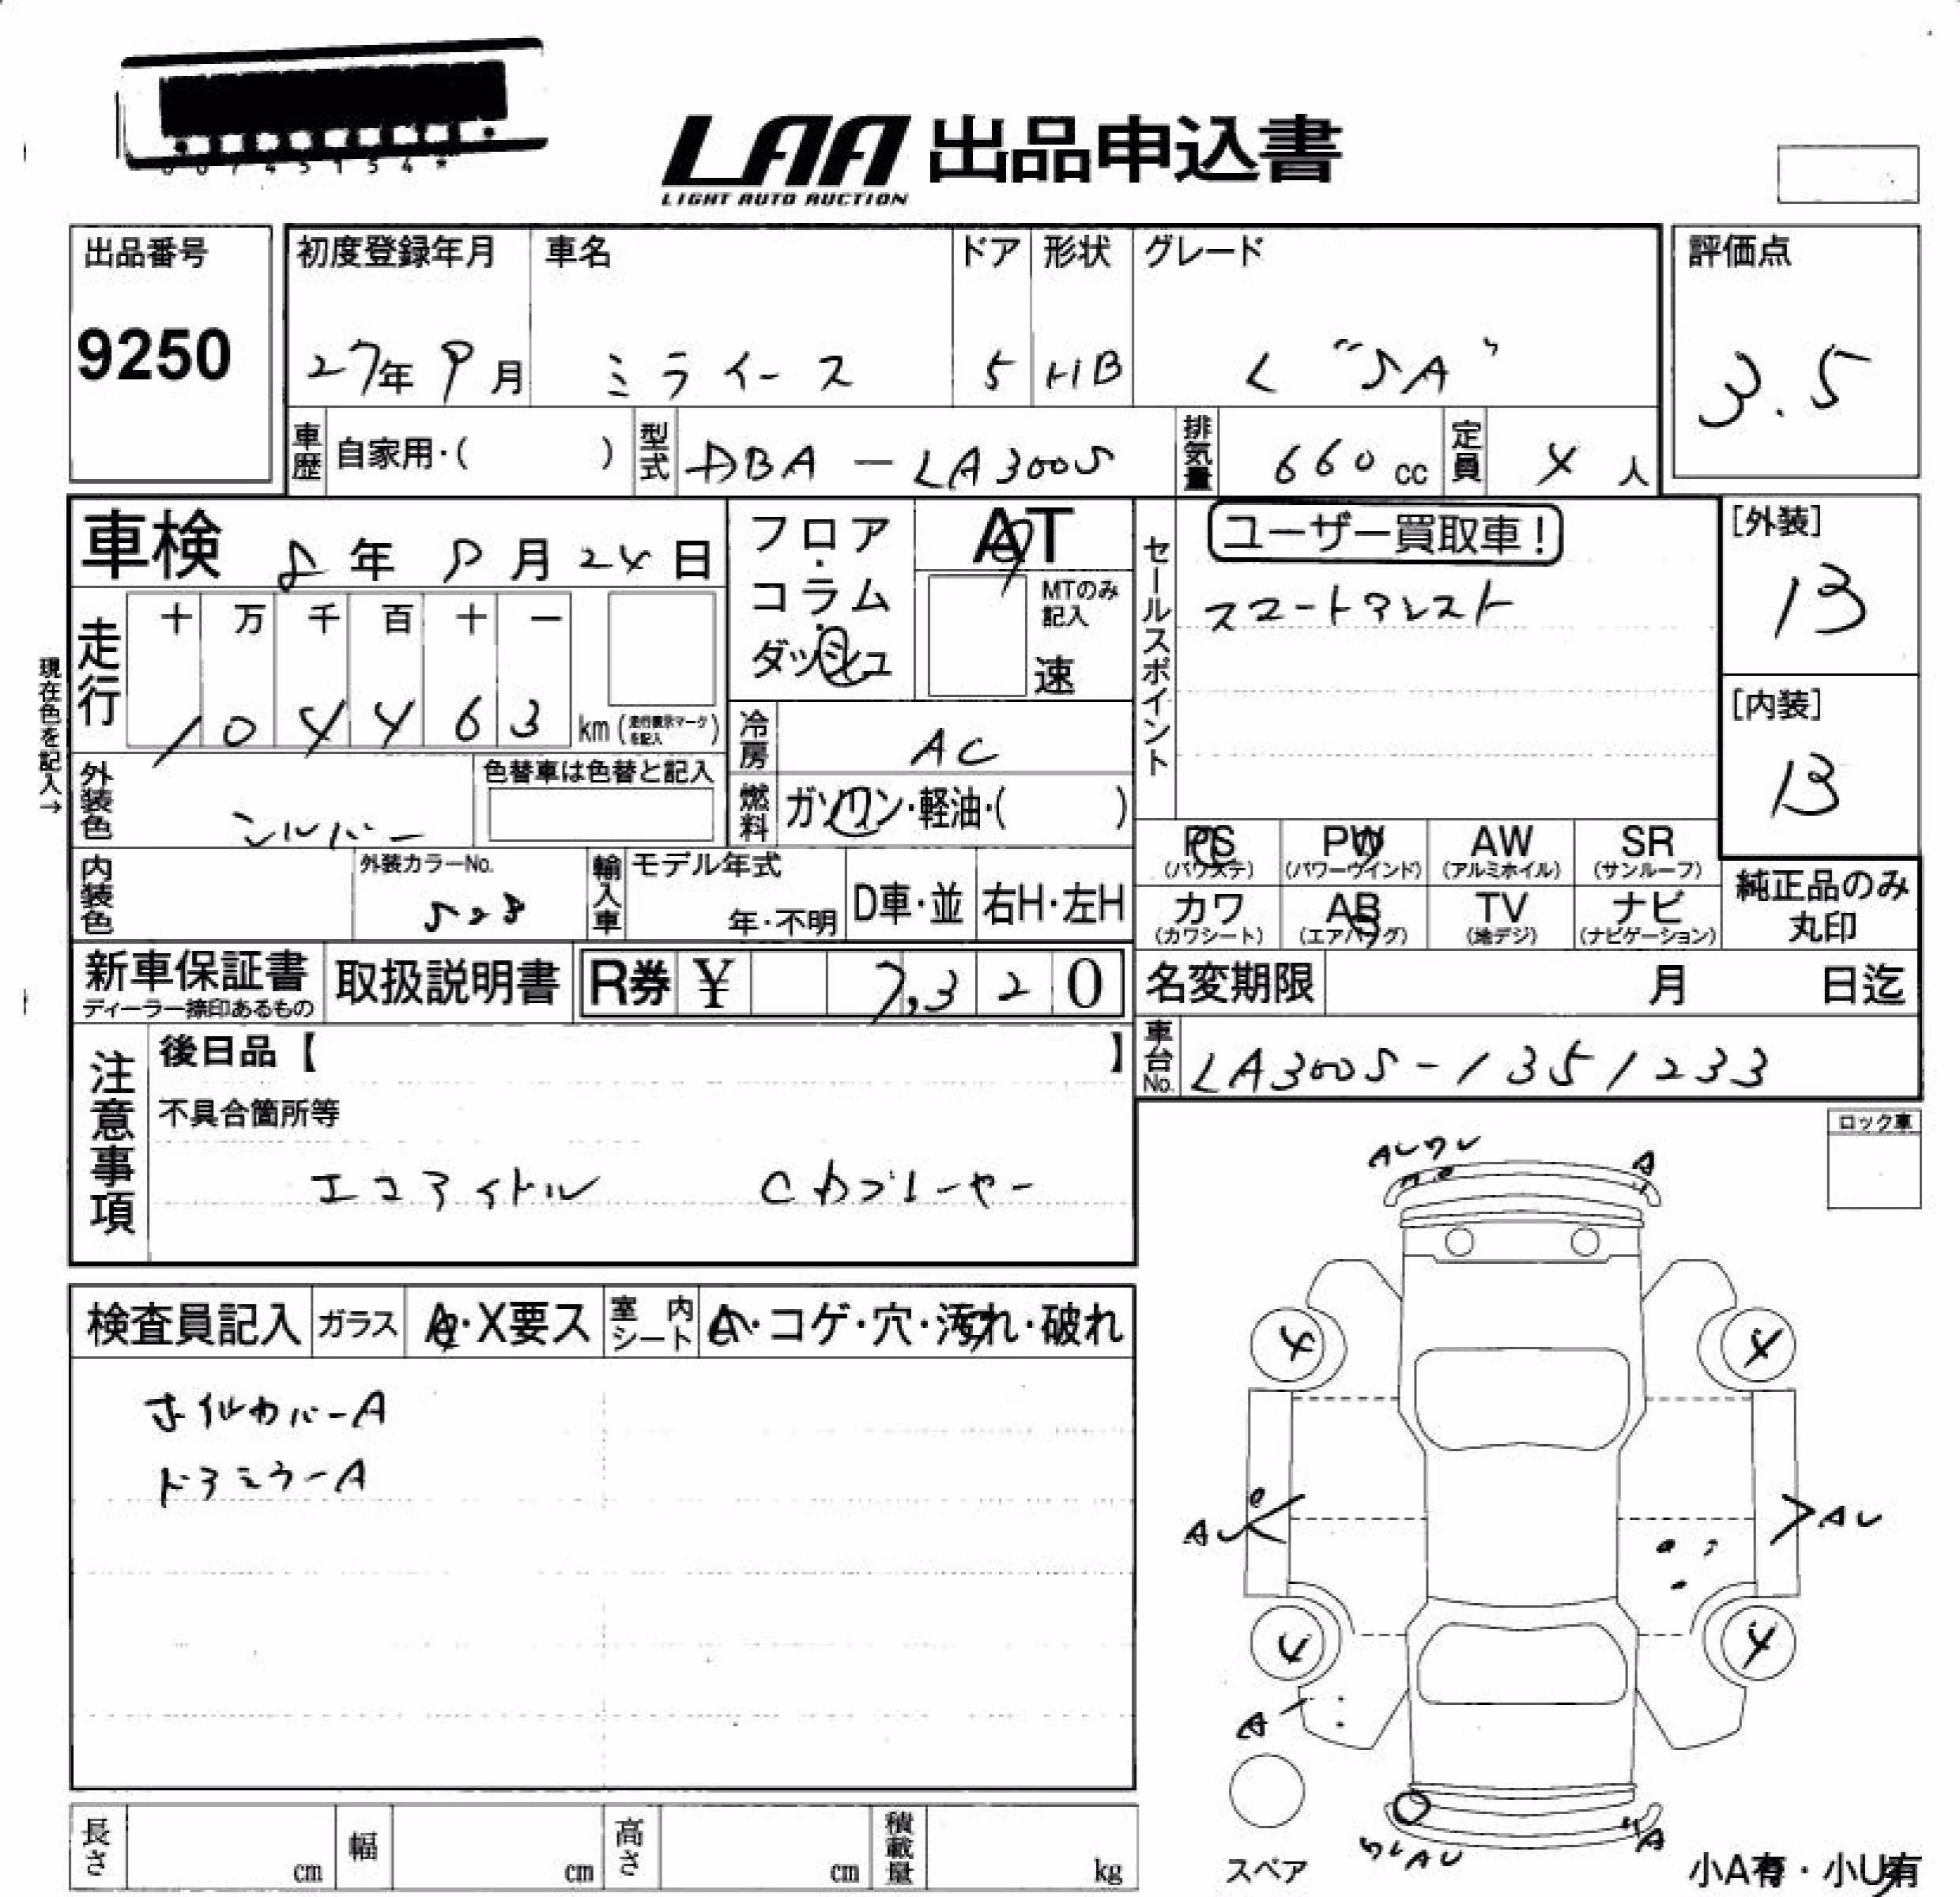 LAA 出品申込書
LIGHT AUTO AUCTION
出品番号
9250
初度登録年月 車名 ドア 形状 グレード
27年 9月 ミライース 5 HB L "SA"
評価点
3.5
車歴 自家用・( ) 型式 DBA - LA300S 排気量 660 cc 定員 4 人
車検 8年 9月 24日
フロア・コラム・ダッシュ
AT
MTのみ記入
速
セールスポイント
ユーザー買取車!
スマートアシスト
[外装]
B
[内装]
B
現在色を記入→
走行 十 万 千 百 十 一
1 0 4 4 6 3 km (走行表示マークを記入)
冷房 AC
外装色 シルバー 色替車は色替と記入
燃料 ガソリン・軽油・( )
PS (パワステ) PW (パワーウインド) AW (アルミホイル) SR (サンルーフ)
カワ (カワシート) AB (エアバッグ) TV (地デジ) ナビ (ナビゲーション)
純正品のみ丸印
内装色 外装カラーNo. S28 輸入車 モデル年式 年・不明 D車・並 右H・左H
新車保証書 ディーラー捺印あるもの 取扱説明書 R券 ¥ 7,320
名変期限 月 日迄
車台No. LA300S-1351233
注意事項
後日品【 】
不具合箇所等
エコアイドル CDプレーヤー
ロック車
検査員記入 ガラス A・X要ス 室内シート ・コゲ・穴・汚れ・破れ
ホイルカバーA
ドアミラーA
A
4 4
AU AU
4 4
A
A
スペア
小A有・小U有
長さ cm 幅 cm 高さ cm 積載量 kg